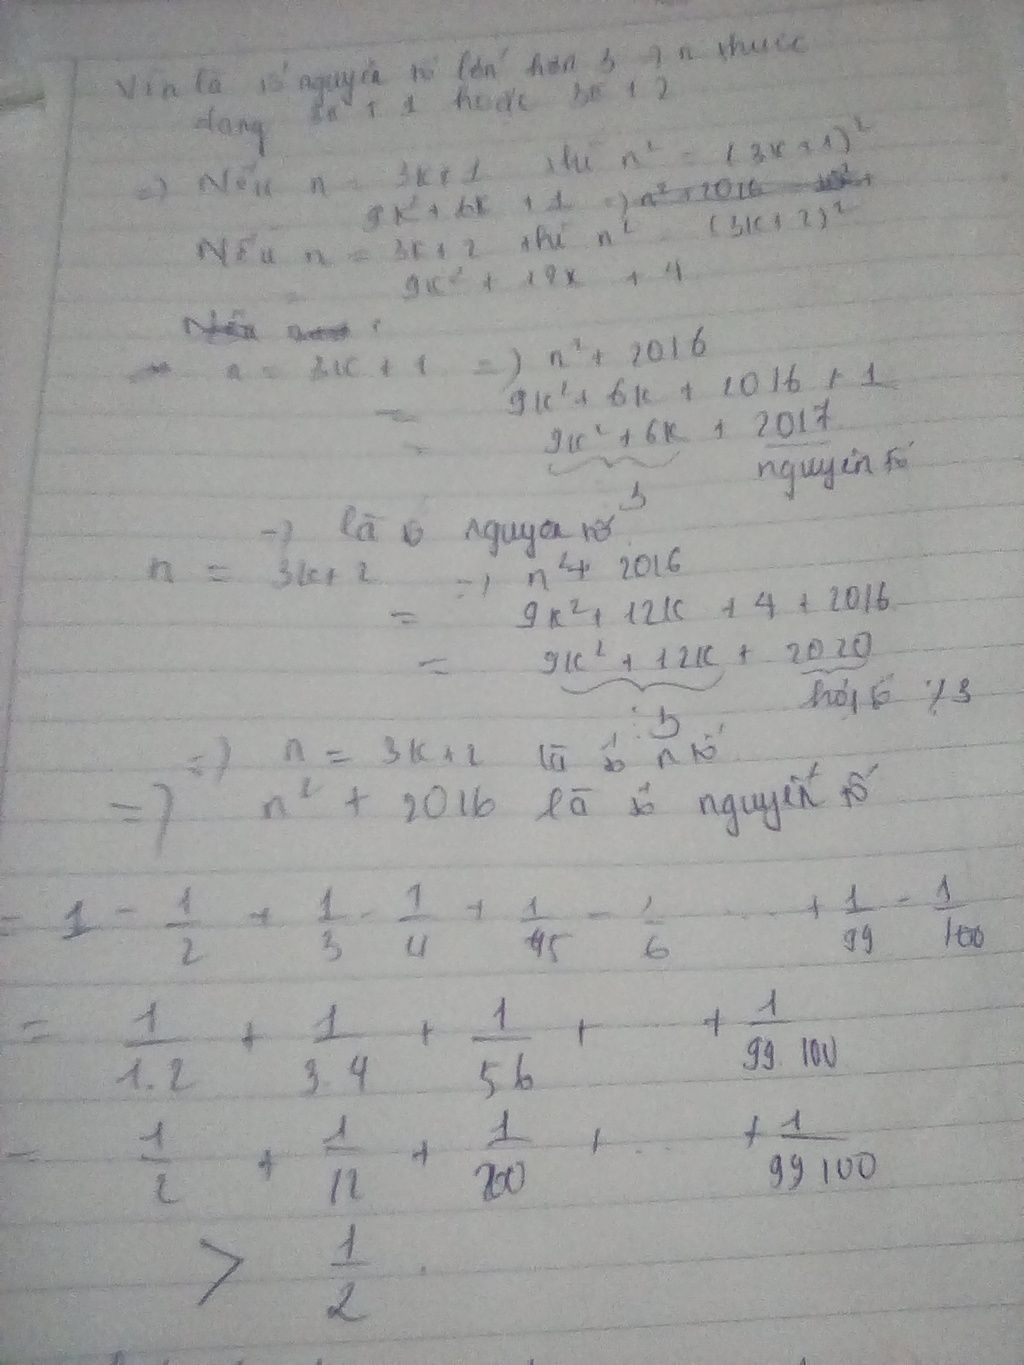 Vì n là số nguyên tố lớn hơn 3 => n thuộc
dạng 3k + 1 hoặc 3k + 2
=) Nếu n = 3k+1 thì n² = (3k+1)²
9k² + 6k + 1 =) n² + 2016
Nếu n = 3k+2 thì n² = (3k+2)²
= 9k² + 12k + 4
Nếu
n = 3k + 1 =) n² + 2016
= 9k² + 6k + 2016 + 1
= 9k² + 6k + 2017
nguyên tố
3
=) là số nguyên tố
n = 3k+2 =) n² + 2016
= 9k² + 12k + 4 + 2016
= 9k² + 12k + 2020
⋮ 3 hợp số ⋮̸ 3
=) n = 3k+2 là số n tố
=) n² + 2016 là số nguyên tố
= 1 - 1/2 + 1/3 - 1/4 + 1/5 - 1/6 ... + 1/99 - 1/100
= 1/1.2 + 1/3.4 + 1/5.6 + ... + 1/99.100
= 1/2 + 1/12 + 1/200 + ... + 1/99.100
> 1/2.